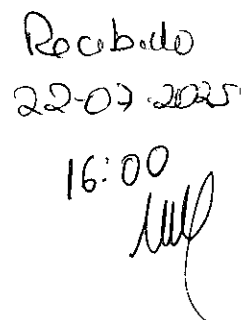 Recibido
22-07-2025
16:00